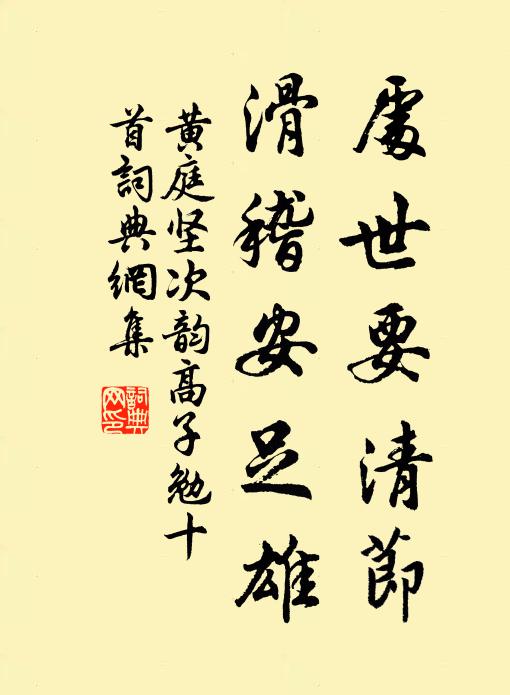 處世要清節
滑稽安足雄
黄庭坚次韵高子勉十
首詞典網集
詞典
网印